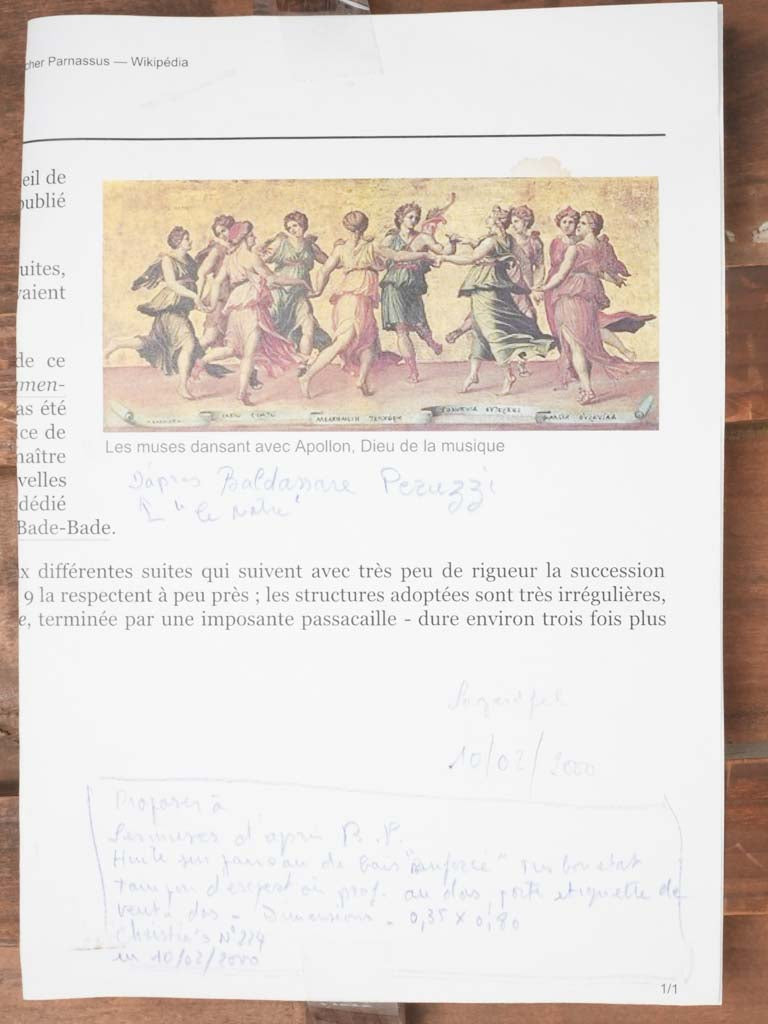 cher Parnassus — Wikipédia
eil de
publié
uites,
vaient
de ce
umen-
as été
ice de
maître
velles
dédié
Bade-Bade.
Les muses dansant avec Apollon, Dieu de la musique
D'après Baldassare Peruzzi
"le nôtre"
x différentes suites qui suivent avec très peu de rigueur la succession
9 la respectent à peu près ; les structures adoptées sont très irrégulières,
e, terminée par une imposante passacaille - dure environ trois fois plus
10/02/2000
Proposer à
Les muses d'après B. P.
Huile sur panneau de bois "renforcé" très bon état
tampon d'expert au dos, porte etiquette de
vente dos - Dimensions - 0,35 x 0,80
Christie's N° 224
10/02/2000
1/1